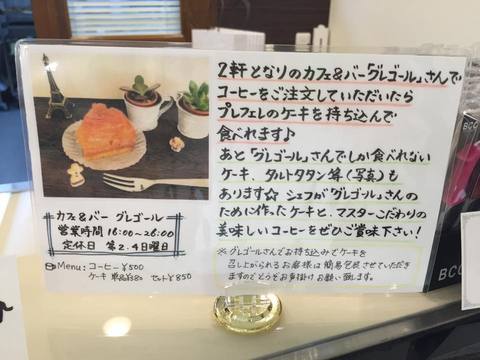 2軒となりのカフェ&バー「グレゴール」さんで
コーヒーをご注文していただいたら
プレフェレのケーキを持ち込んで
食べれます♪
あと「グレゴール」さんでしか食べれない
ケーキ、タルトタタン等(写真)も
あります☆ シェフが「グレゴール」さんの
ために作ったケーキと、マスターこだわりの
美味しいコーヒーをぜひご賞味下さい!
※グレゴールさんでお持ち込みでケーキを
召し上がられるお客様は簡易包装させていただき
ますのでどうぞお声掛けお願い致します。
カフェ&バー グレゴール
営業時間 16:00~26:00
定休日 第2.4日曜日
Menu: コーヒー¥500
ケーキ 単品¥380 セット¥850
BCC